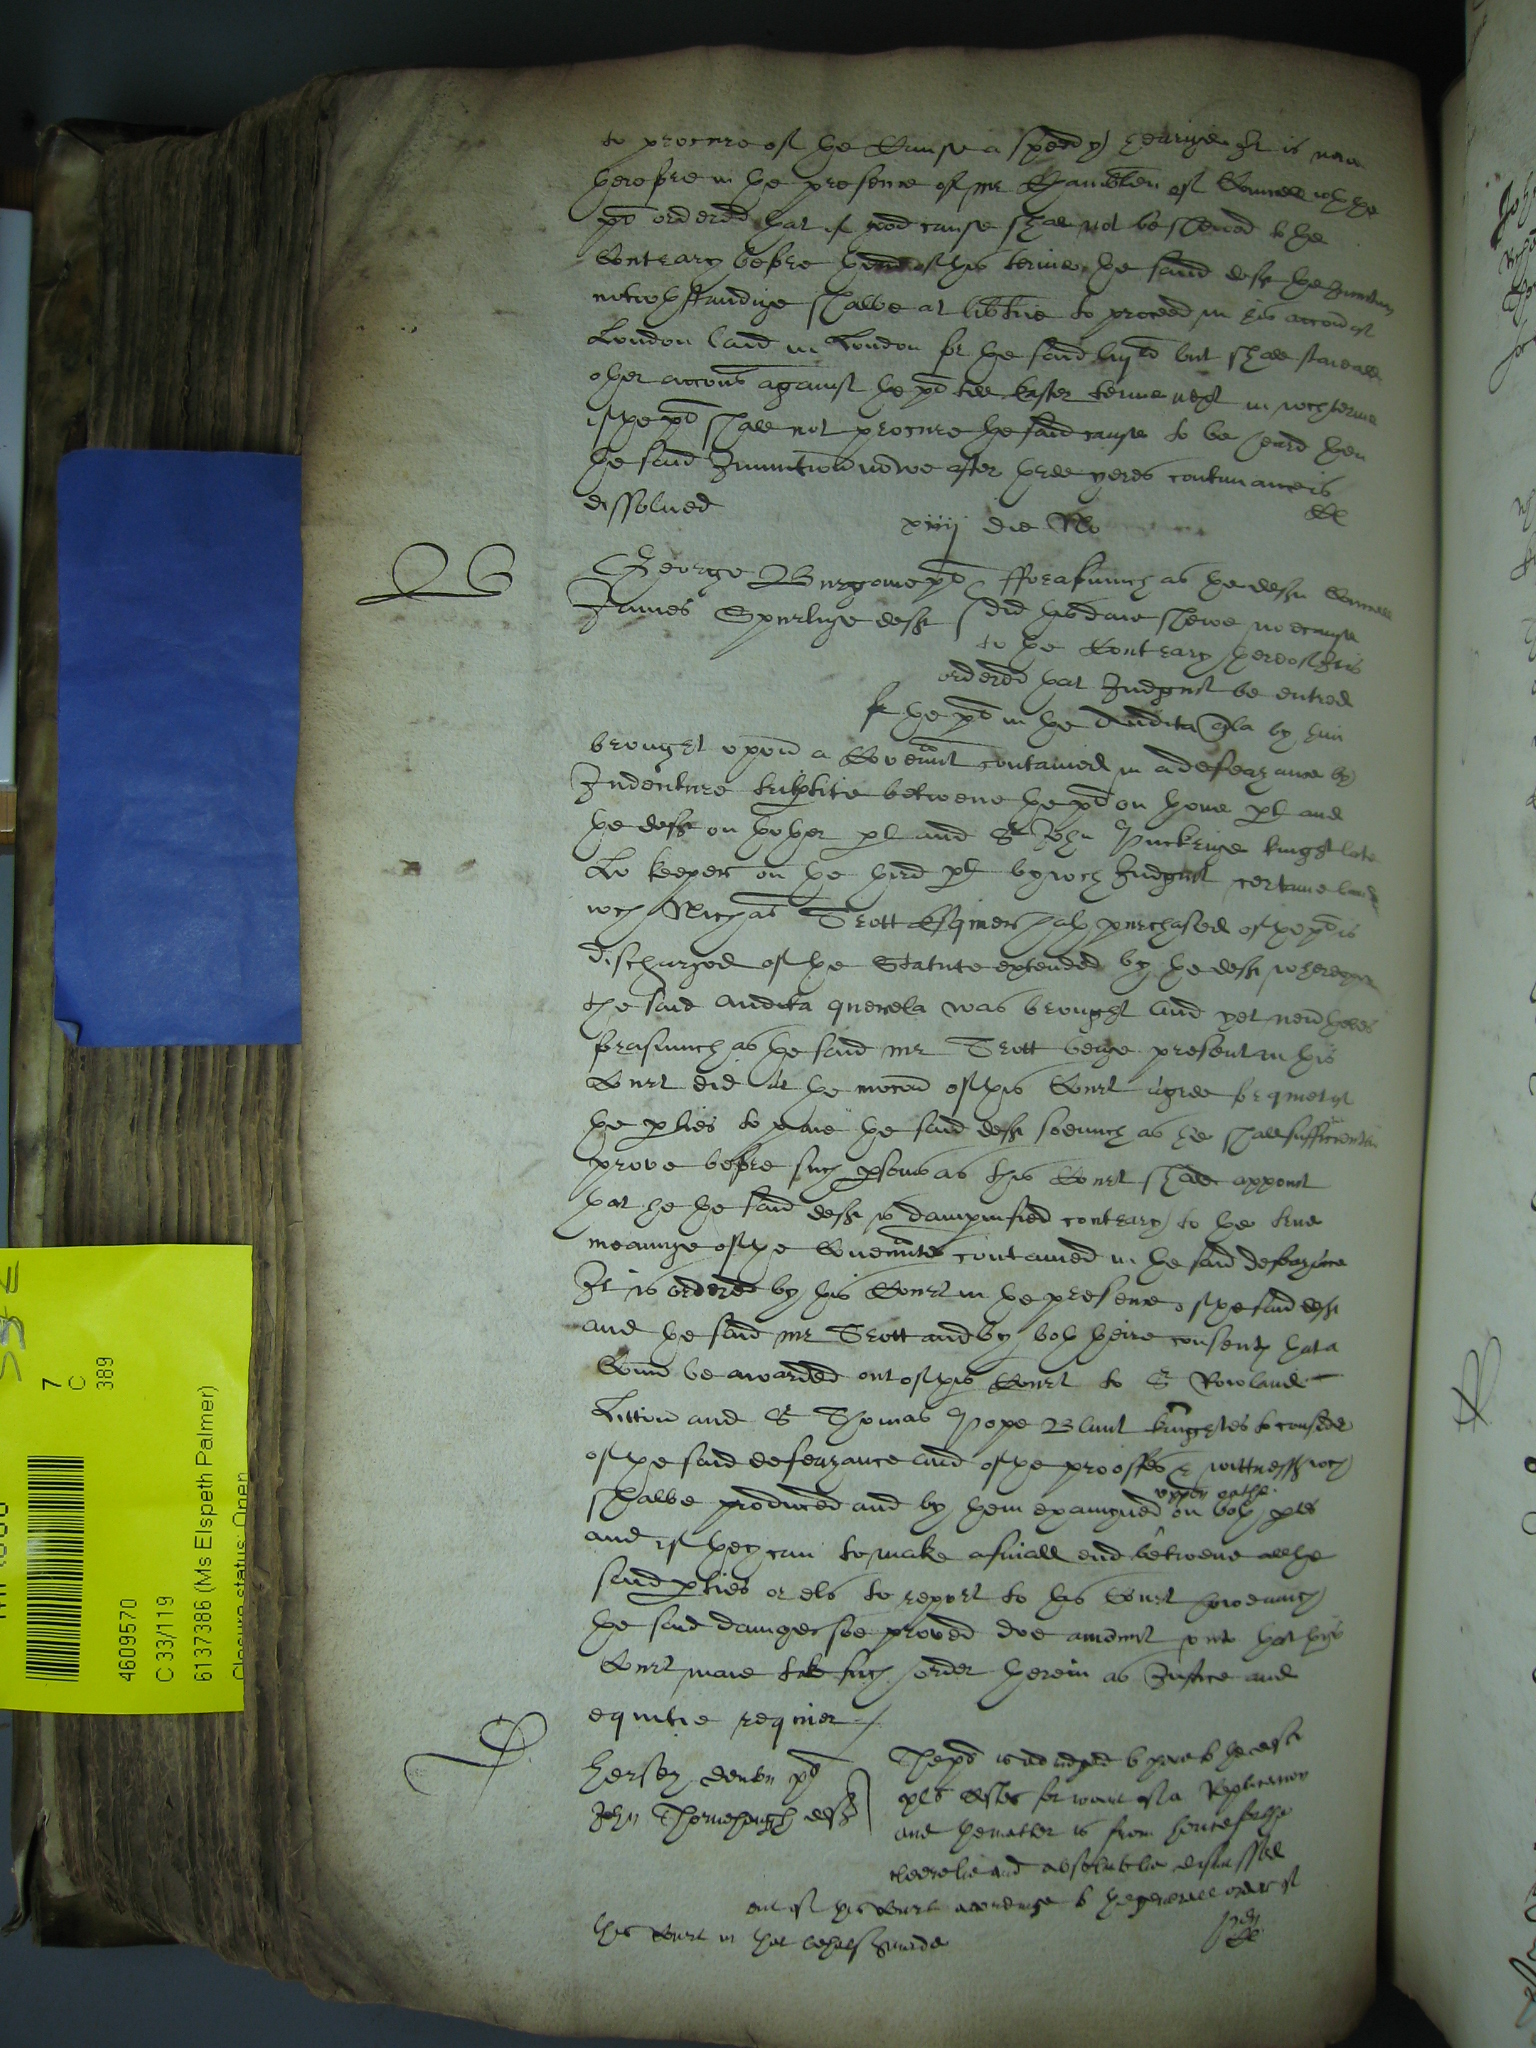 to procure of the Cause a speedy hearinge It is now
therefore in the presence of Mr Chamblen of Councell wth the
pl ordered that if good cause shall not be shewed to the
Contrary before thend of this terme the said deft the Iniunction
notwthstandinge shalbe at libtie to proceed in his accon at
London laid in London for the said but shall staie all
other accons against the pl till Easter terme next in wch terme
if the pl shall not procure the said cause to be heard then
the said Iniunction nowe after three yeres continuance is
dissolued
xiiij die No
B
George Burgoine pl
James Spurlinge deft
fforasmuch as the defts Councell
did this daie shewe no cause
to the Contrary thereof It is
ordered that Iudgmt be entred
for the pl in the Audita qla by him
brought vpon a Covennt contained in a defeazance by
Indenture triptite betwene the pl on thone pt and
the deft on thother pt and Sr John Puckringe knight late
Lo keeper on the third pt by wch Iudgmt certaine lands
wch Nichas Trott Esquier hath purchased of the pl is
discharged of the Statute extended by the deft wherevpon
the said audita querela was brought And yet neuthelesse
forasmuch as the said Mr Trott beige present in this
Court did at the mocon of this Court agree for quiet of
the pties to paie the said deft soemuch as he shall sufficientlie
prove before such psons as this Court shall appoint
that he the said deft is dampnified contrary to the true
meaninge of the Covennts contained in the said defeazance
It is ordered by this Court in the presence of the said deft
and the said Mr Trott and by both theire consents that a
Comn be awarded out of this Court to Sr Rowland
Litton and Sr Thomas Pope Blunt knightes to consider
of the said defeazance and of the prooffes & wittnesses wch
shalbe produced and by them examyned vppon oathe on both ptes
and if they can to make a finall end betwene all the
said pties or els to report to this Court howe much
the said damages soe proved doe amount vnto that this
Court maie take such order therein as Iustice and
equitie requier
D
hersey pl
John Thornehaugh deft
The pl is adiudged to paie to the deft
xls costes for want of a Replicacion
and the matter is from henceforthe
cleerelie and absolutelie dismissed
out of this Court accordinge to the generall order of
this Court in that behalf made
4609570
C 33/119
6137386 (Ms Elspeth Palmer)
Closure status: Open
7
C
389